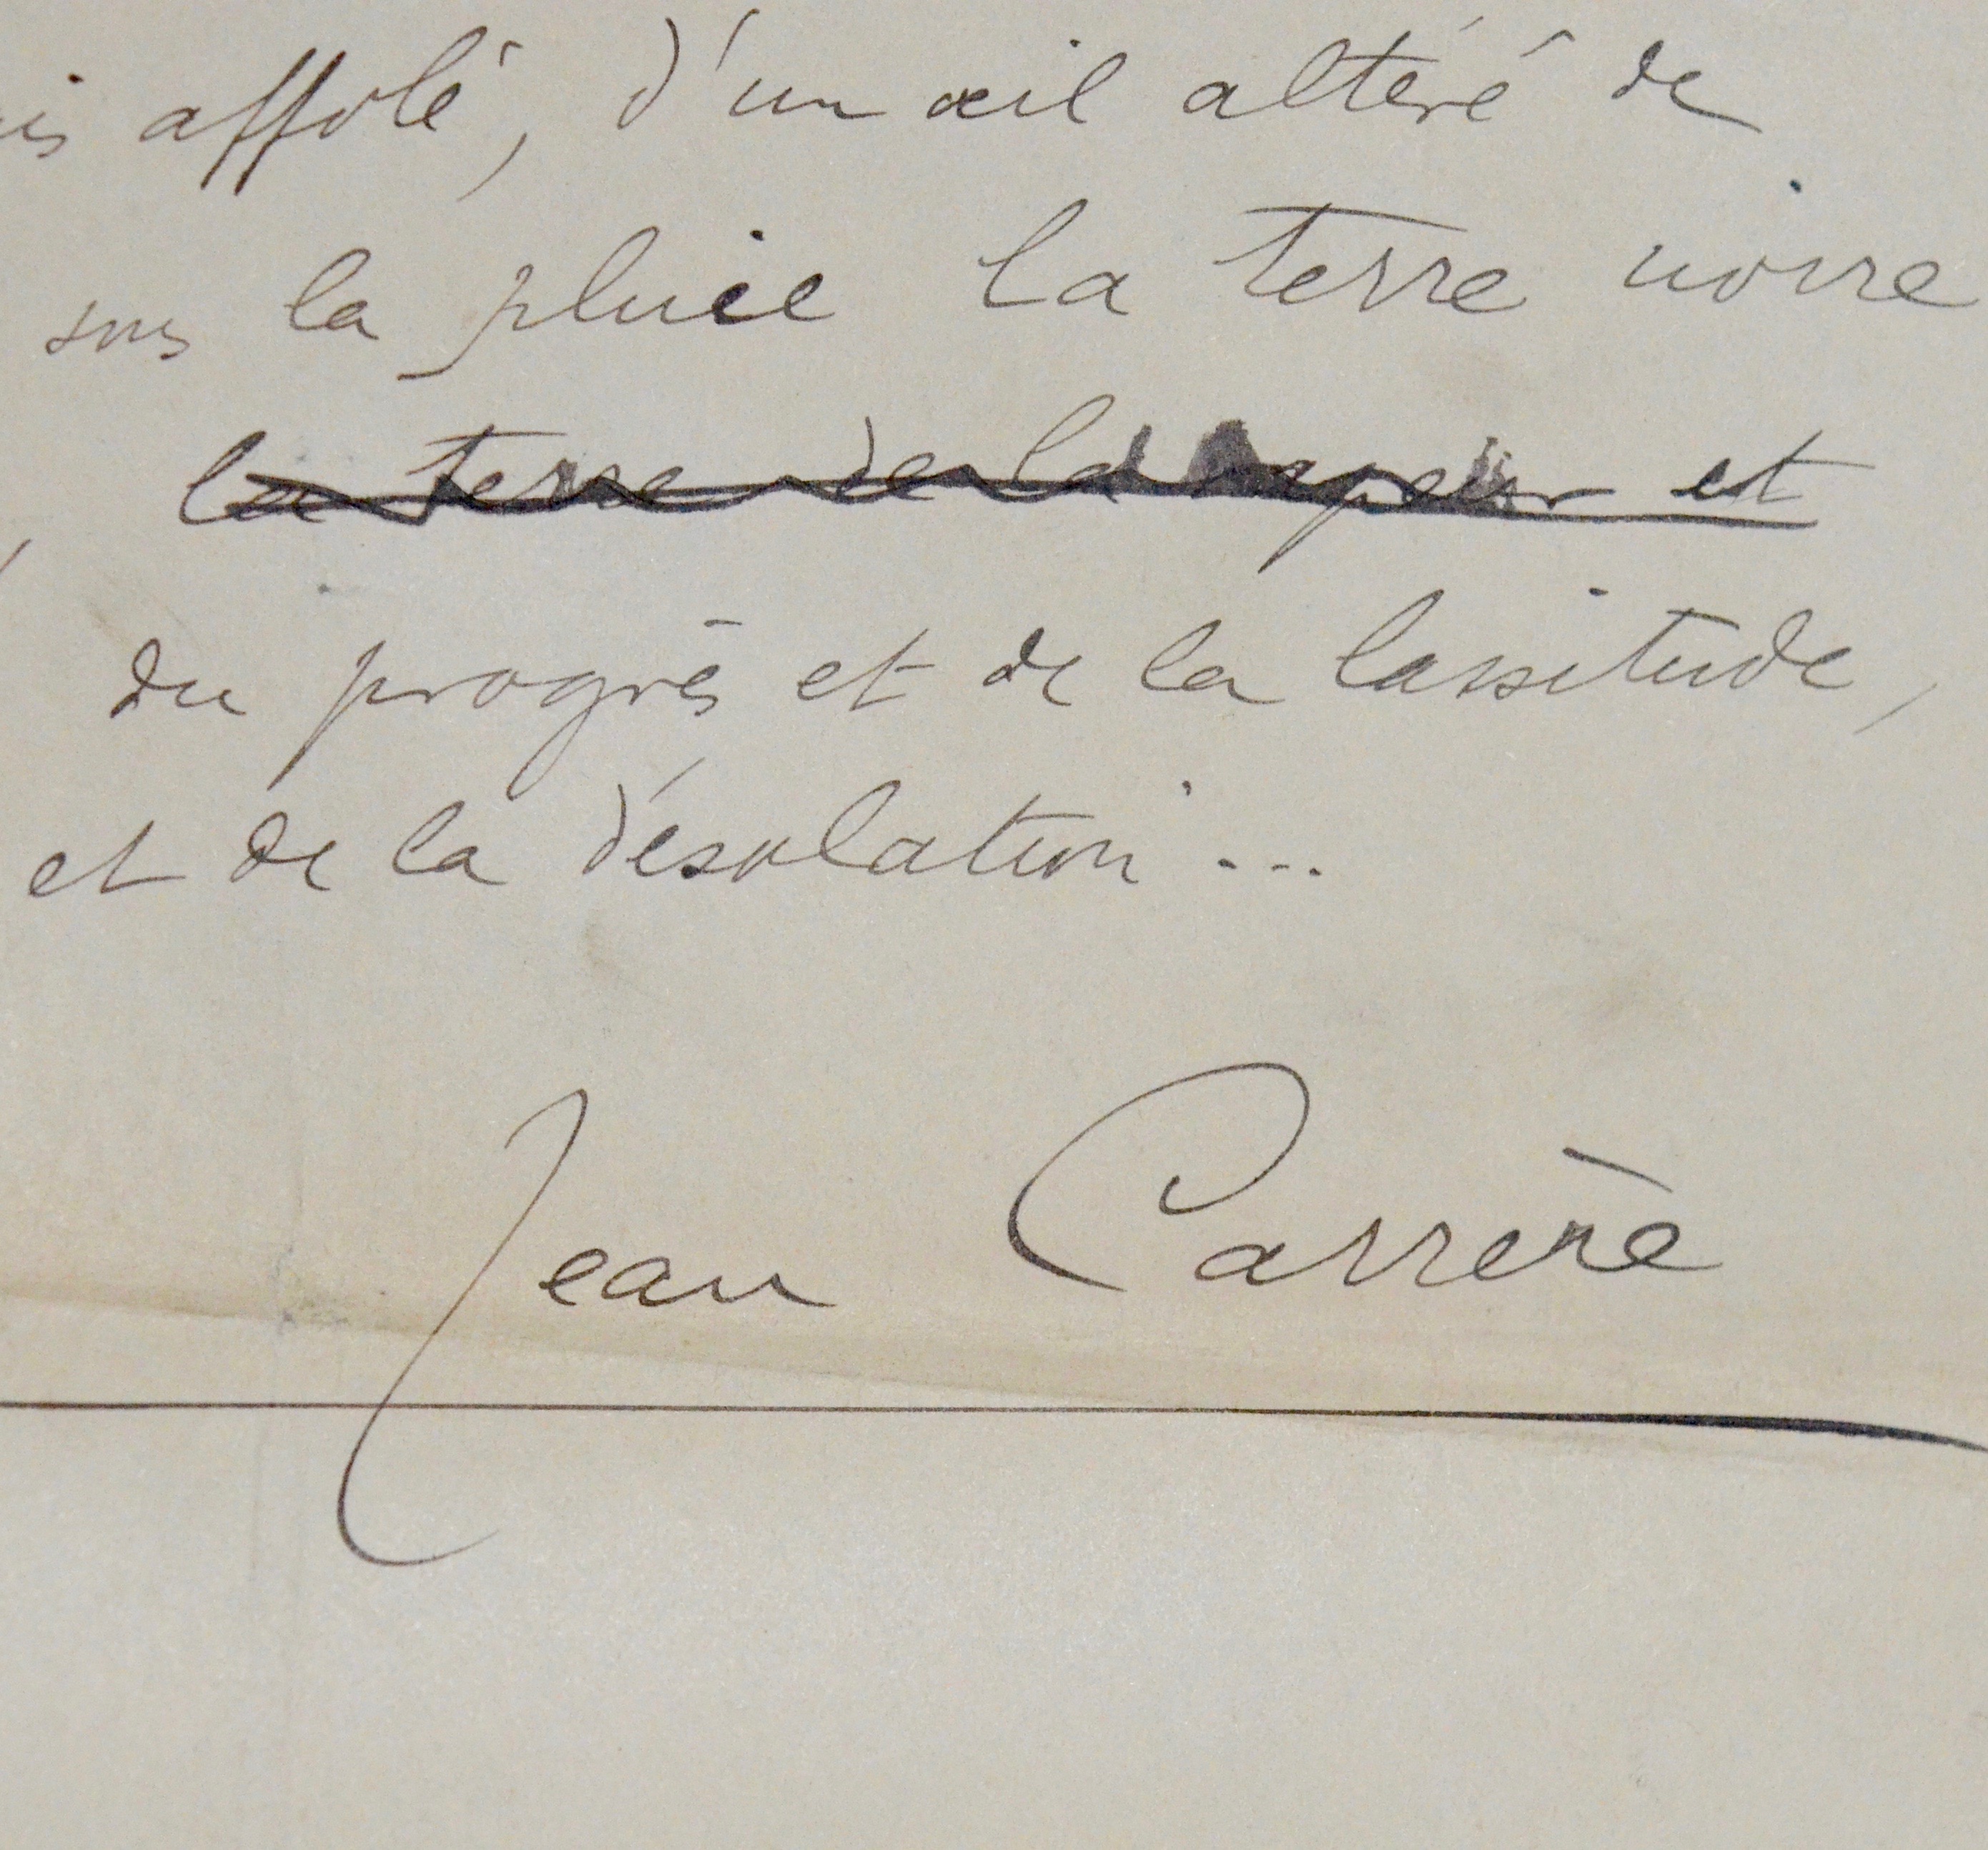 affolé, d'un œil altéré de
sous la pluie la terre noire
la terre de la vapeur et
du progrès et de la lassitude,
et de la désolation ...
Jean Carrère